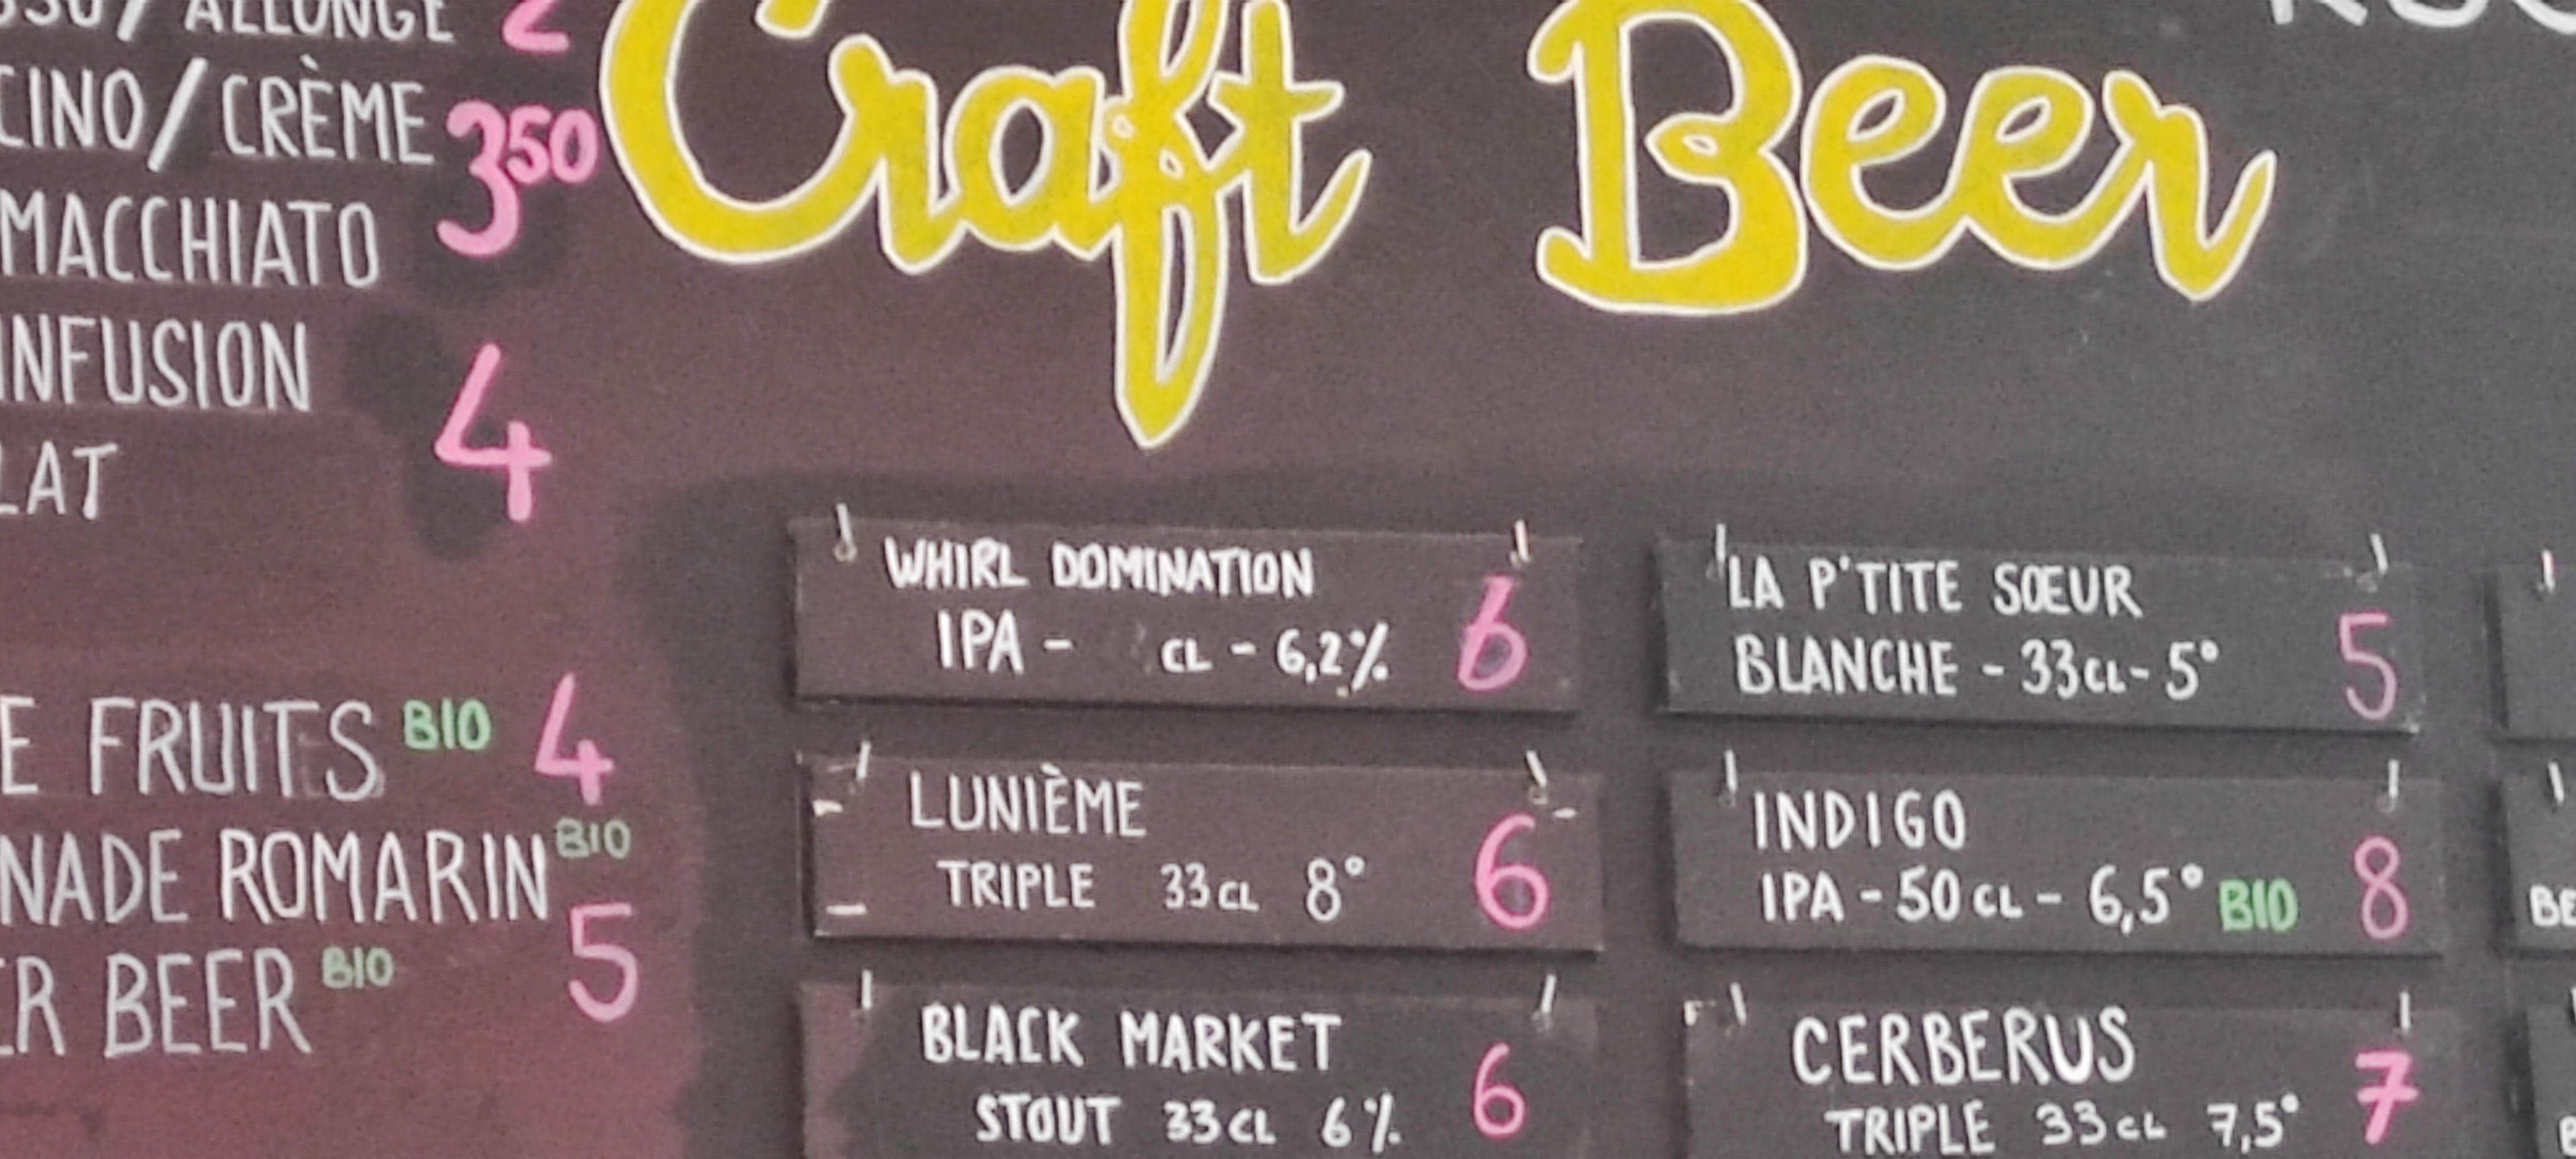 ALLONGÉ 2
CINO/CRÈME 350
MACCHIATO
INFUSION 4
LAT
E FRUITS BIO 4
NADE ROMARIN BIO
ER BEER BIO 5
Craft Beer
WHIRL DOMINATION
IPA - CL - 6,2% 6
LUNIÈME
TRIPLE 33CL 8° 6
BLACK MARKET
STOUT 33CL 6% 6
LA P'TITE SŒUR
BLANCHE - 33CL - 5° 5
INDIGO
IPA - 50CL - 6,5° BIO 8
CERBERUS
TRIPLE 33CL 7,5° 7